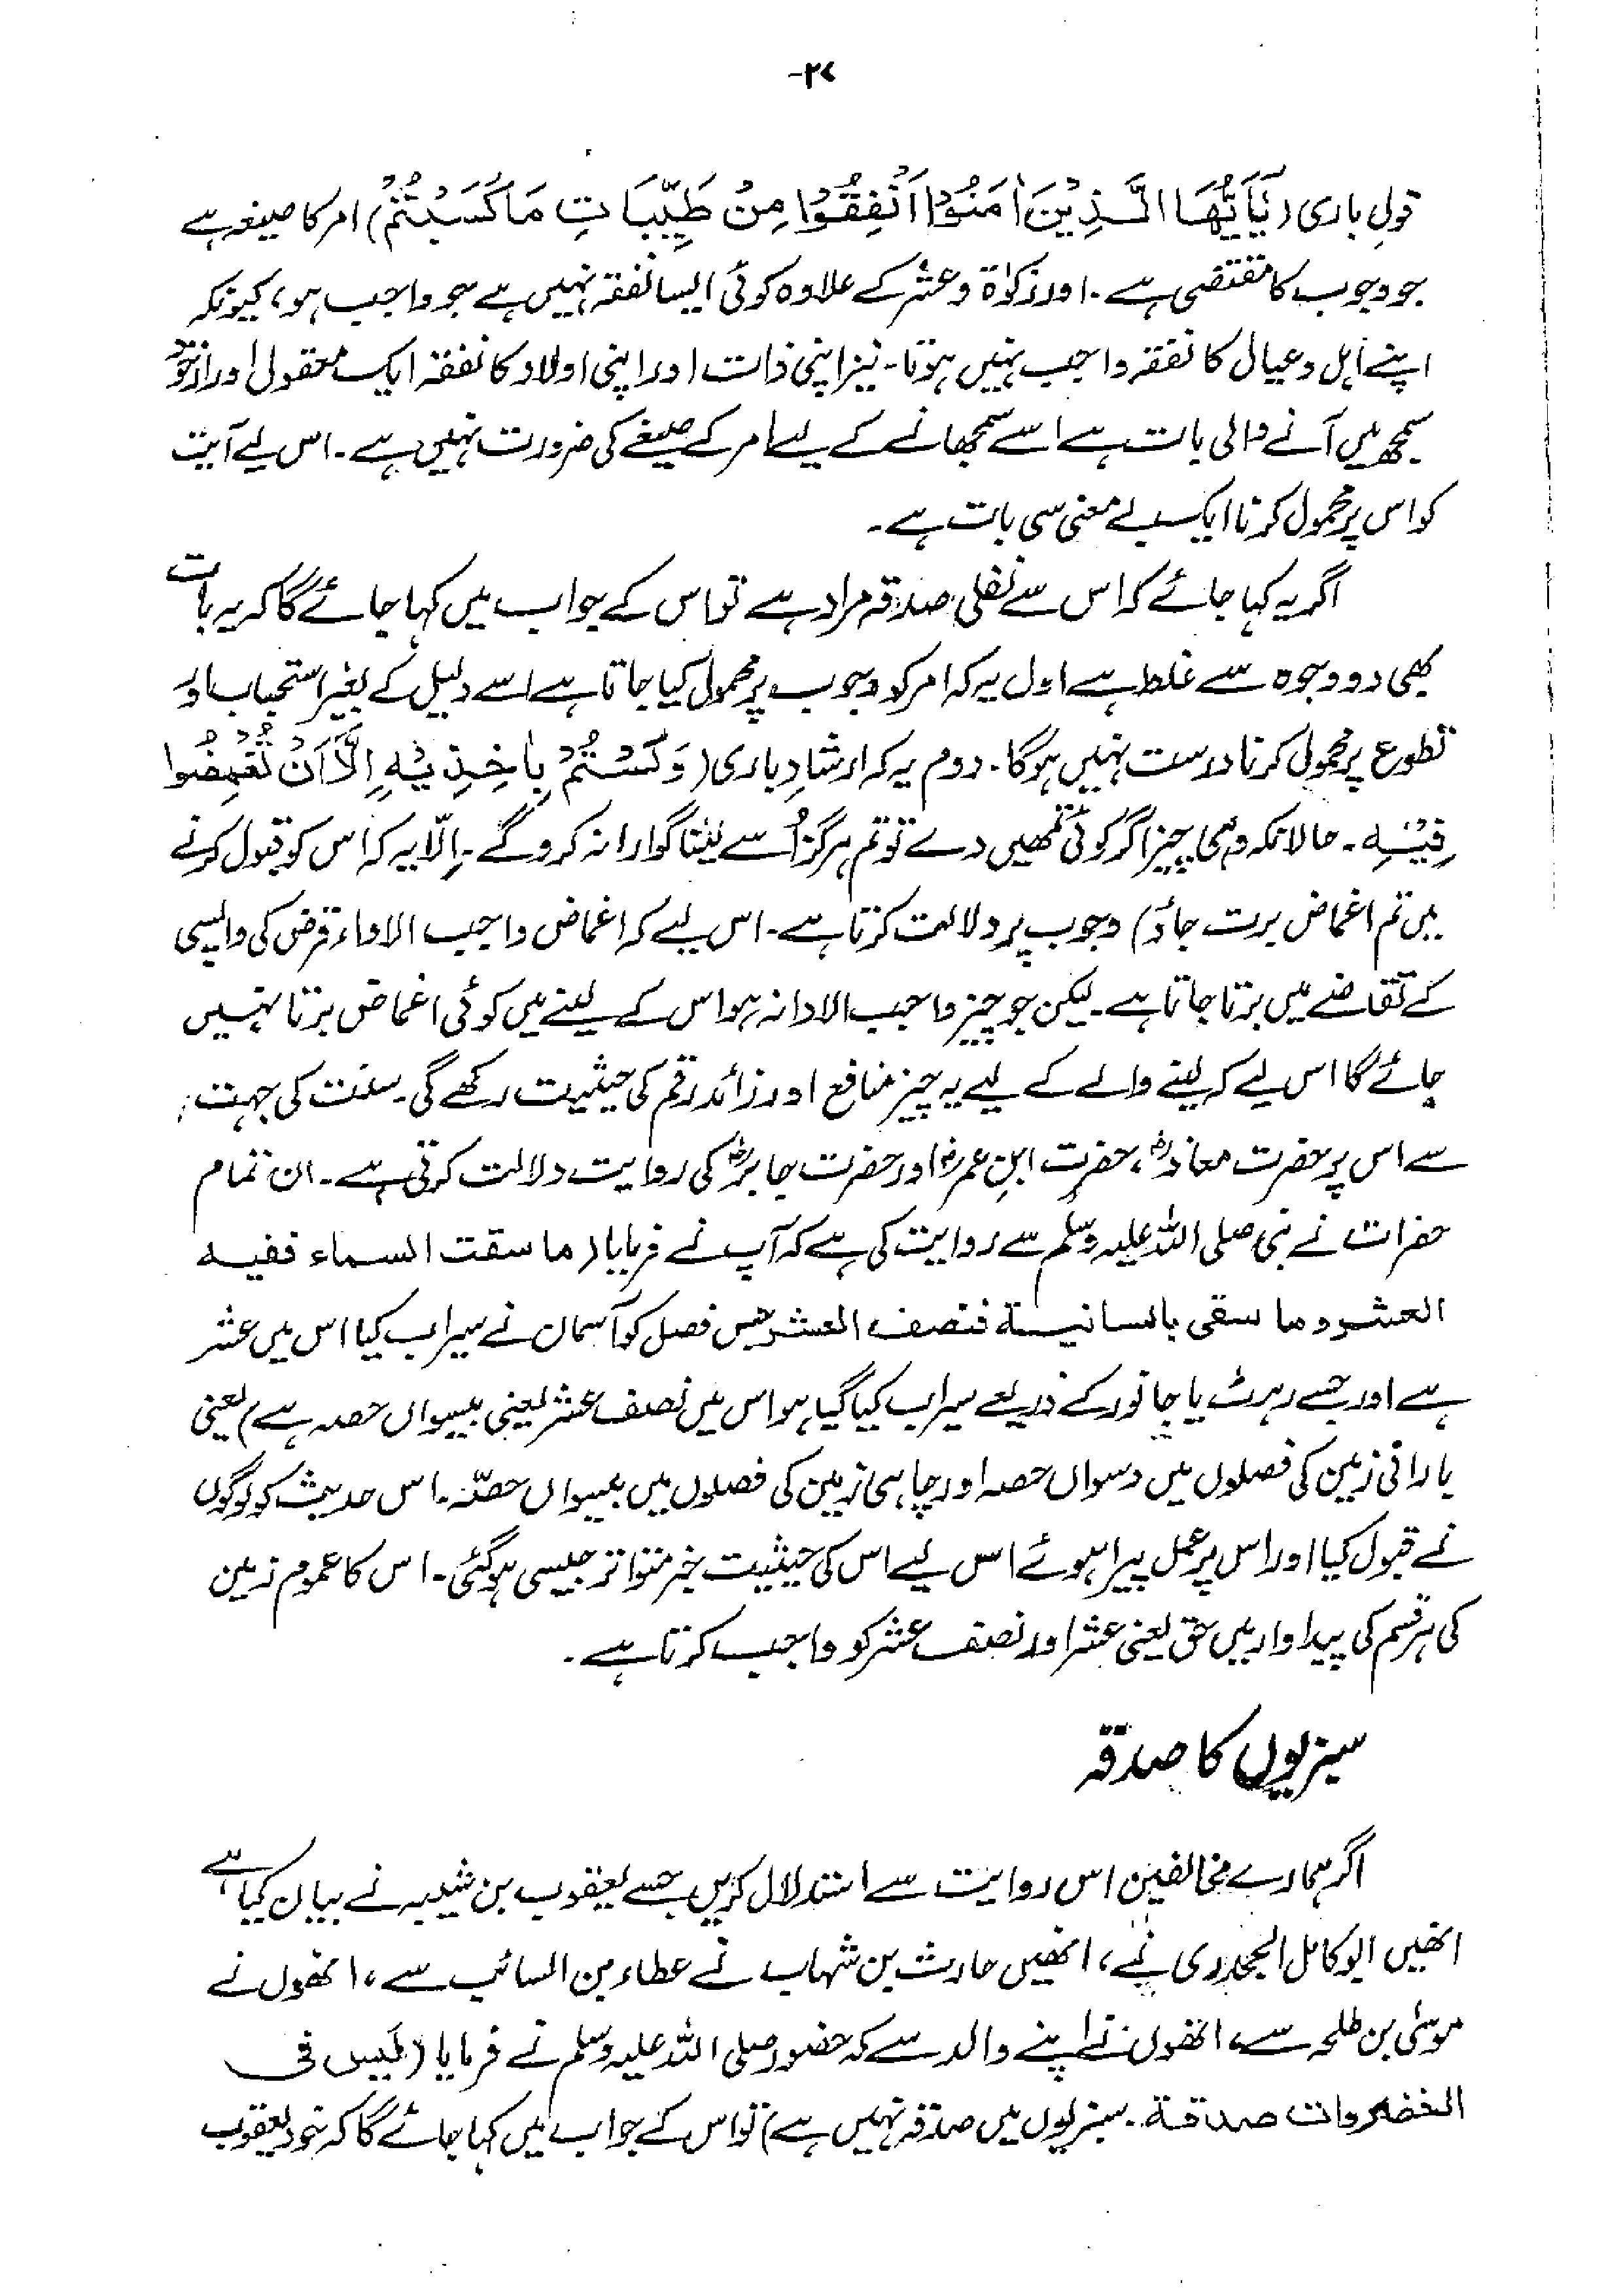 ۲۷-
قولِ باری (یَٰٓاَیُّهَا الَّذِیْنَ اٰمَنُوْٓا اَنْفِقُوْا مِنْ طَیِّبَاتِ مَا کَسَبْتُمْ) امر کا صیغہ ہے
جو وجوب کا مقتضی ہے۔ اور زکوٰۃ و عشر کے علاوہ کوئی ایسا نفقہ نہیں ہے جو واجب ہو، کیونکہ
اپنے اہل و عیال کا نفقہ واجب نہیں ہوتا۔ نیز اپنی ذات اور اپنی اولاد کا نفقہ ایک معقول اور ازخود
سمجھ میں آنے والی بات ہے اسے سمجھانے کے لیے امر کے صیغے کی ضرورت نہیں ہے۔ اس لیے آیت
کو اس پر محمول کرنا ایک بے معنی سی بات ہے۔
اگر یہ کہا جائے کہ اس سے نفلی صدقہ مراد ہے تو اس کے جواب میں کہا جائے گا کہ یہ بات
بھی دو وجوہ سے غلط ہے اول یہ کہ امر کو وجوب پر محمول کیا جاتا ہے اسے دلیل کے بغیر استحباب اور
تطوع پر محمول کرنا درست نہیں ہوگا۔ دوم یہ کہ ارشادِ باری (وَلَسْتُمْ بِاٰخِذِیْهِ اِلَّآ اَنْ تُغْمِضُوْا
فِیْهِ۔ حالانکہ وہی چیز اگر کوئی تمھیں دے تو تم ہرگز اُسے لینا گوارا نہ کرو گے۔ اِلّا یہ کہ اس کو قبول کرنے
میں تم اغماض برت جاؤ) وجوب پر دلالت کرتا ہے۔ اس لیے کہ اغماض واجب الاداء قرض کی واپسی
کے تقاضے میں برتا جاتا ہے۔ لیکن جو چیز واجب الادا نہ ہو اس کے لینے میں کوئی اغماض برتا نہیں
جائے گا اس لیے کہ لینے والے کے لیے یہ چیز منافع اور زائد رقم کی حیثیت رکھے گی۔ سنت کی جہت
سے اس پر حضرت معاذؓ، حضرت ابنِ عمرؓ اور حضرت جابرؓ کی روایت دلالت کرتی ہے۔ ان تمام
حضرات نے نبی صلی اللہ علیہ وسلم سے روایت کی ہے کہ آپ نے فرمایا (ما سقت السماء ففیه
العشر وما سقی بالسانیة فنصف العشر جس فصل کو آسمان نے سیراب کیا اس میں عشر
ہے اور جسے رہٹ یا جانور کے ذریعے سیراب کیا گیا ہو اس میں نصف عشر یعنی بیسواں حصہ ہے) یعنی
بارانی زمین کی فصلوں میں دسواں حصہ اور چاہی زمین کی فصلوں میں بیسواں حصّہ۔ اس حدیث کو لوگوں
نے قبول کیا اور اس پر عمل پیرا ہوئے اس لیے اس کی حیثیت خبر متواتر جیسی ہو گئی۔ اس کا عموم زمین
کی ہر قسم کی پیداوار میں حق یعنی عشر اور نصف عشر کو واجب کرتا ہے۔
سبزیوں کا صدقہ
اگر ہمارے مخالفین اس روایت سے استدلال کریں جسے یعقوب بن شیبہ نے بیان کیا ہے
انھیں ابو کامل الجحدری نے، انھیں حارث بن شہاب نے عطاء بن السائب سے، انھوں نے
موسٰی بن طلحہ سے، انھوں نے اپنے والد سے کہ حضور صلی اللہ علیہ وسلم نے فرمایا (لَیس فی
الخضروات صدقة۔ سبزیوں میں صدقہ نہیں ہے) تو اس کے جواب میں کہا جائے گا کہ خود یعقوب